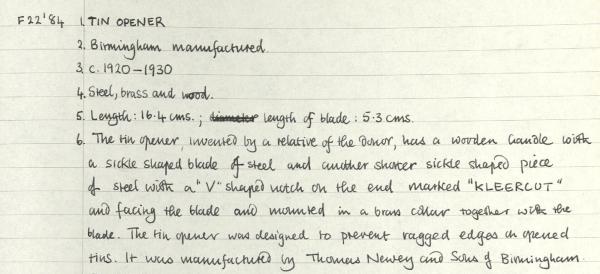 F22'84 1. TIN OPENER
2. Birmingham manufactured.
3. c. 1920-1930
4. Steel, brass and wood.
5. Length: 16.4 cms.; diameter length of blade: 5.3 cms.
6. The tin opener, invented by a relative of the donor, has a wooden handle with
a sickle shaped blade of steel and another shorter sickle shaped piece
of steel with a "V" shaped notch on the end marked "KLEERCUT"
and facing the blade and mounted in a brass collar together with the
blade. The tin opener was designed to prevent ragged edges on opened
tins. It was manufactured by Thomas Newey and Sons of Birmingham.